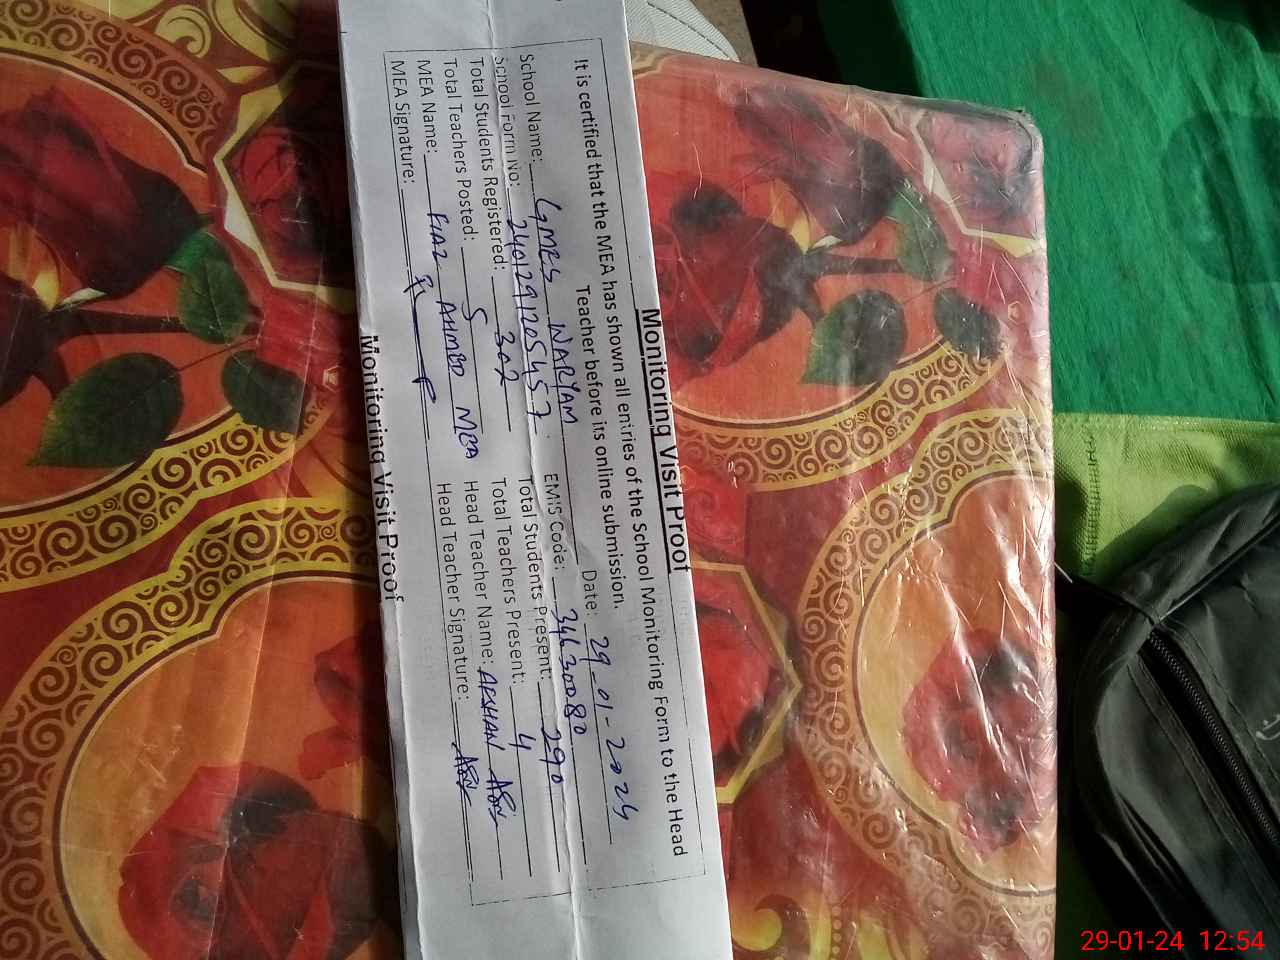 Monitoring Visit Proof
It is certified that the MEA has shown all entries of the School Monitoring Form to the Head
Teacher before its online submission.
Date: 29-01-2024
School Name: GMPS WARYAM
EMIS Code: 34630080
School Form No: 240129120545 7
Total Students Present: 290
Total Students Registered: 302
Total Teachers Present: 4
Total Teachers Posted: 5
Head Teacher Name: AFSHAN
MEA Name: FIAZ AHMED MEA
Head Teacher Signature:
MEA Signature:
Monitoring Visit Proof
29-01-24 12:54